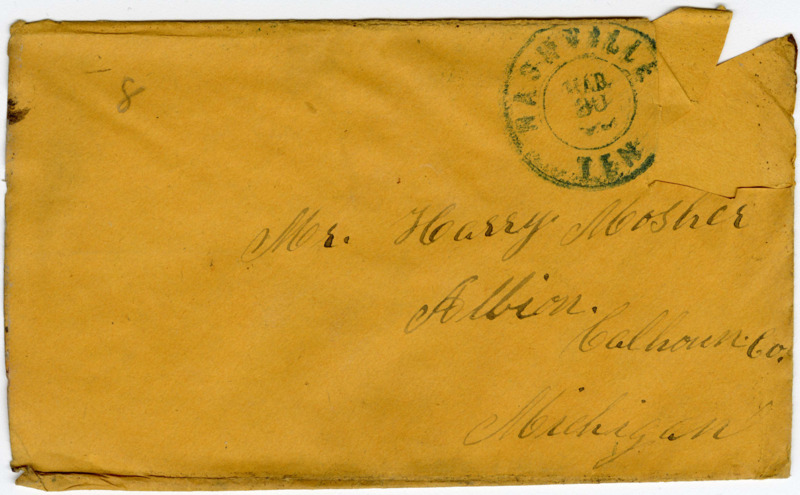 8
NASHVILLE
MAR
20
TEN
Mr. Harry Mosher
Albion.
Calhoun Co.
Michigan